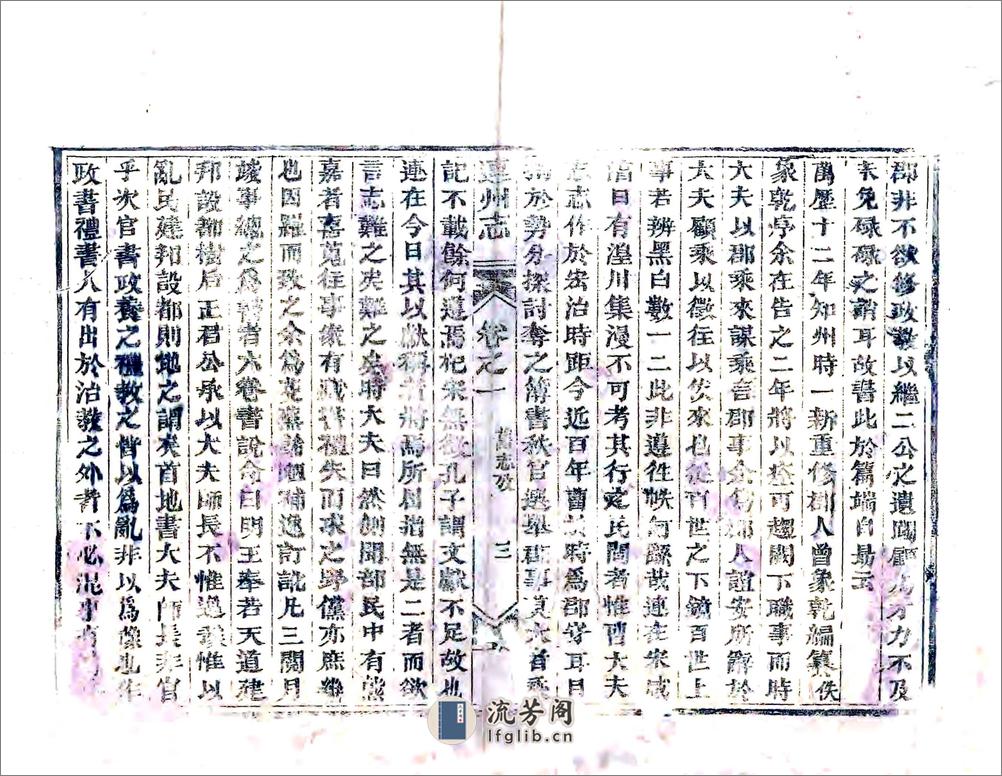 郡非不欲修政教以繼二公之遺風顧為才力不及
未免碌碌之誚耳故書此於篇端自勗云
萬曆十二年知州時一新重修郡人曾象乾編纂佚
象乾序余在告之二年將以 可趨闕下職事而時
大夫以郡乘來謀乘言郡事余為郡人誼安所辭於
大夫顧乘以徵往以俟來也從百世之下鏡百世上
事若辨黑白數一二此非遵往帙何繇哉連在宋咸
淳曰有湟川集漫不可考其行 民間者惟曹大夫
志志作於宏治時距今近百年曹 時為郡守耳目
於勢分探討奪之簿書秋官選舉郡事 大者
連州志 卷之一 舊志序 三
記不載餘何遺焉杞宋無徵孔子謂文獻不足故也
連在今日其以獻稱者將焉所居 無是二者而欲
言志難之矣難之矣時大夫曰然側聞部民中有
嘉者喜蒐往事家有藏書禮失而求之野儻亦庶幾
也因羅而致之余為 補逸訂訛凡三閱月
竣事總之為 者六卷書說命曰明王奉若天道建
邦設都樹后王君公承以大夫師長不惟逸豫惟以
亂民建邦設都則地之謂矣首地書大夫師長非官
乎次官書政養之禮教之皆以為亂非以為豫也作
政書禮書人有出於治教之外者不必混
流芳阁
lfglib.cn